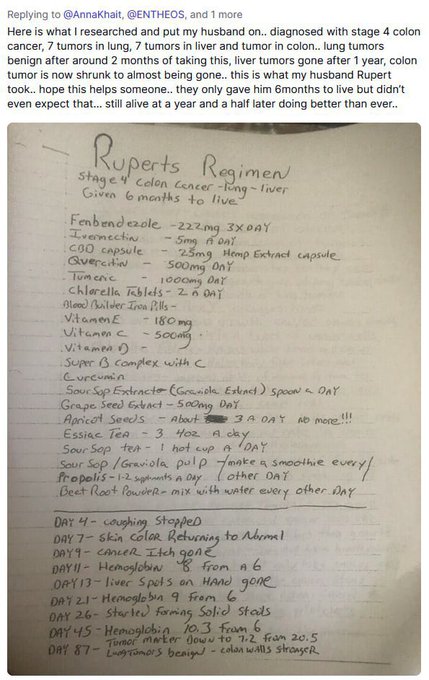 Replying to @AnnaKhait, @ENTHEOS, and 1 more
Here is what I researched and put my husband on.. diagnosed with stage 4 colon
cancer, 7 tumors in lung, 7 tumors in liver and tumor in colon.. lung tumors
benign after around 2 months of taking this, liver tumors gone after 1 year, colon
tumor is now shrunk to almost being gone.. this is what my husband Rupert
took.. hope this helps someone.. they only gave him 6months to live but didn't
even expect that... still alive at a year and a half later doing better than ever..
Ruperts Regimen
Stage 4 colon cancer -lung - liver
Given 6 months to live
Fenbendezole - 222mg 3X DAY
Ivermectin - 5mg A DAY
CBD CAPSULE - 25mg Hemp Extract capsule
Quercitin - 500mg DAY
Tumeric - 1000mg DAY
Chlorella Tablets - 2 A DAY
Blood Builder Iron Pills -
Vitamen E - 180mg
Vitamen C - 500mg
Vitamen D -
Super B complex with C
Curcumin
Sour Sop Extract (Graviola Extract) spoon a DAY
Grape Seed Extract - 500mg DAY
Apricot Seeds - About 3 A DAY NO more!!!
Essiac Tea - 3 4oz A day
Sour Sop tea - 1 hot cup A DAY
Sour Sop / Graviola pulp / make a smoothie every /
Propolis - 1-2 supplments A Day / other DAY
Beet Root Powder - mix with water every other DAY
DAY 4 - coughing Stopped
DAY 7 - Skin COLOR Returning to Normal
DAY 9 - CANCER Itch gone
DAY 11 - Hemoglobin 8 from A 6
DAY 13 - liver Spots on HAND gone
DAY 21 - Hemoglobin 9 From 6
DAY 26 - Started Forming Solid Stools
DAY 45 - Hemoglobin 10.3 from 6
Tumor marker Down to 7.2 from 20.5
DAY 87 - Lung Tumors benign - colon walls stronger